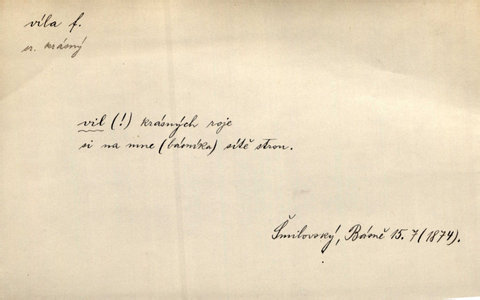 víla f.
sr. krásný
vil (!) krásných roje
si na mne (básníka) sítě stron.
Šmilovský, Básně 15. 7 (1874).